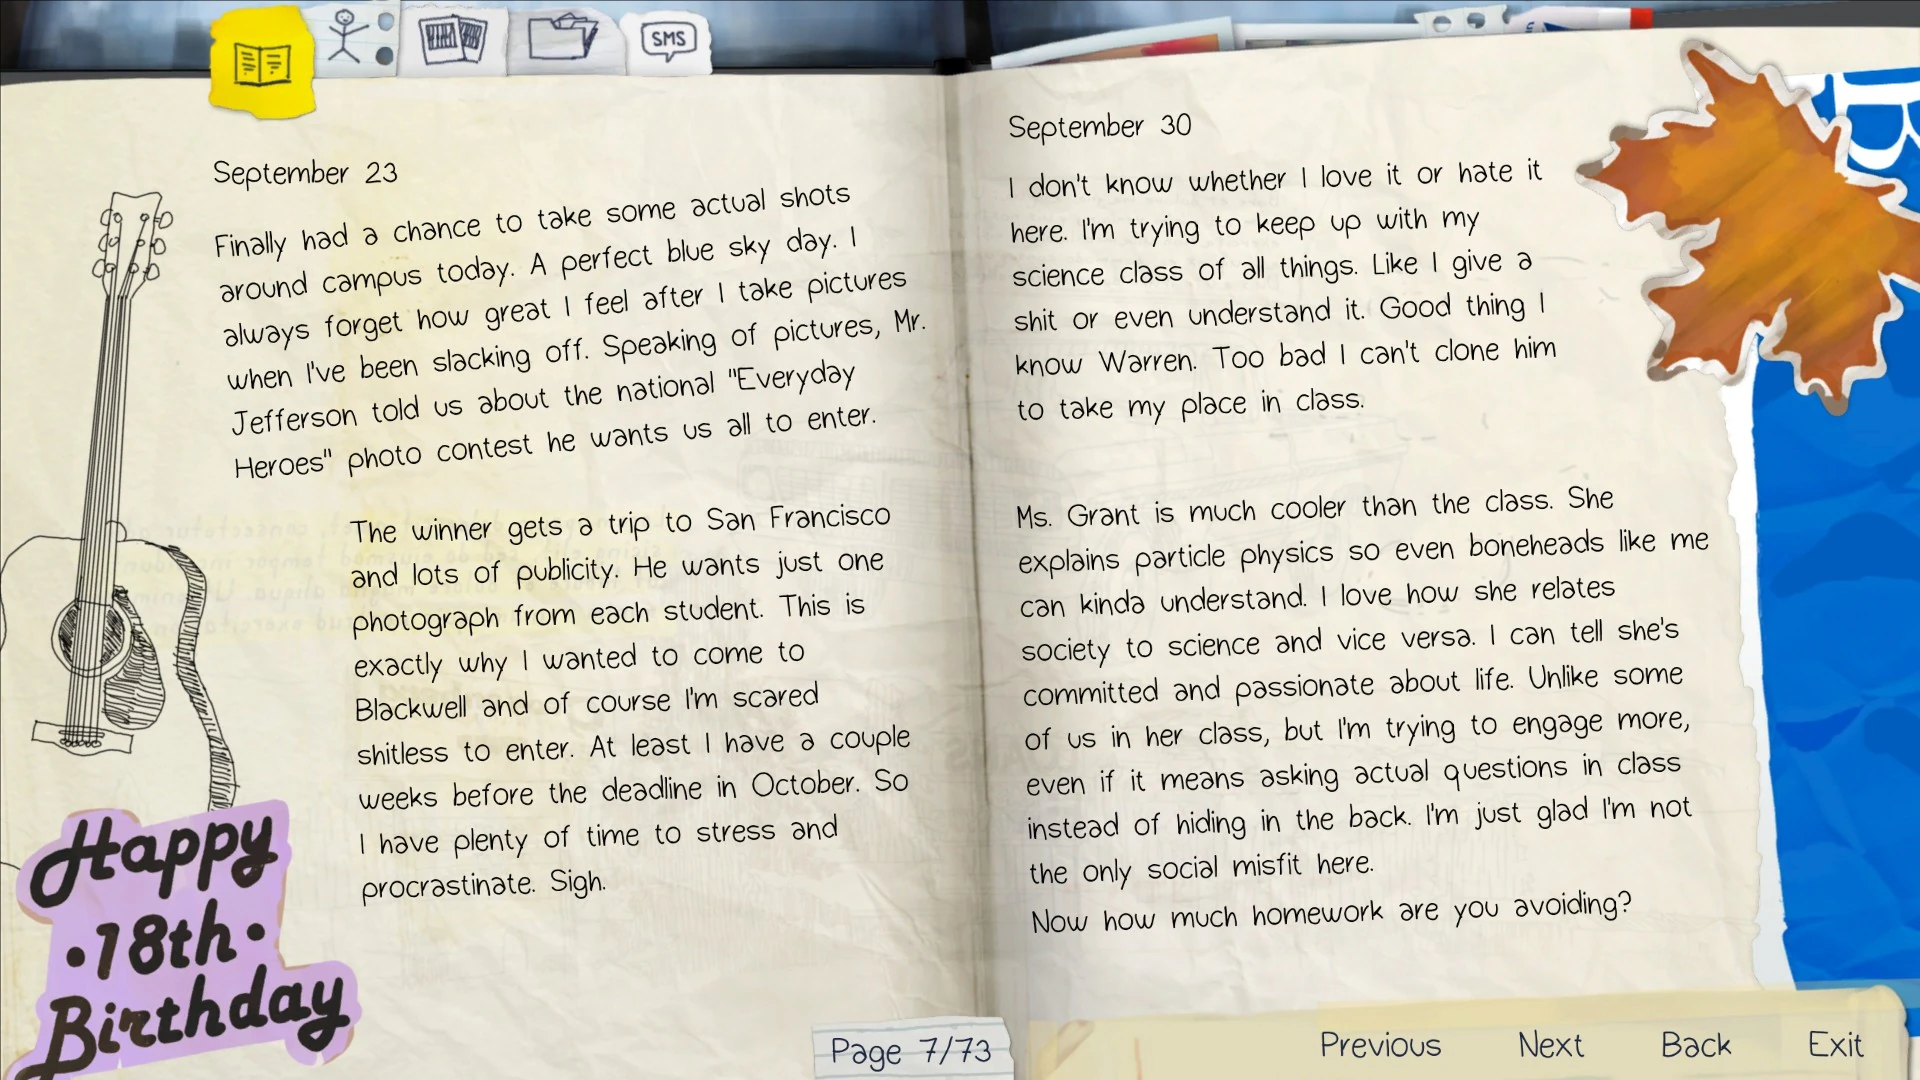 SMS
September 23
Finally had a chance to take some actual shots
around campus today. A perfect blue sky day. I
always forget how great I feel after I take pictures
when I've been slacking off. Speaking of pictures, Mr.
Jefferson told us about the national "Everyday
Heroes" photo contest he wants us all to enter.
The winner gets a trip to San Francisco
and lots of publicity. He wants just one
photograph from each student. This is
exactly why I wanted to come to
Blackwell and of course I'm scared
shitless to enter. At least I have a couple
weeks before the deadline in October. So
I have plenty of time to stress and
procrastinate. Sigh.
Happy
•18th•
Birthday
Page 7/73
September 30
I don't know whether I love it or hate it
here. I'm trying to keep up with my
science class of all things. Like I give a
shit or even understand it. Good thing I
know Warren. Too bad I can't clone him
to take my place in class.
Ms. Grant is much cooler than the class. She
explains particle physics so even boneheads like me
can kinda understand. I love how she relates
society to science and vice versa. I can tell she's
committed and passionate about life. Unlike some
of us in her class, but I'm trying to engage more,
even if it means asking actual questions in class
instead of hiding in the back. I'm just glad I'm not
the only social misfit here.
Now how much homework are you avoiding?
B
Previous Next Back Exit